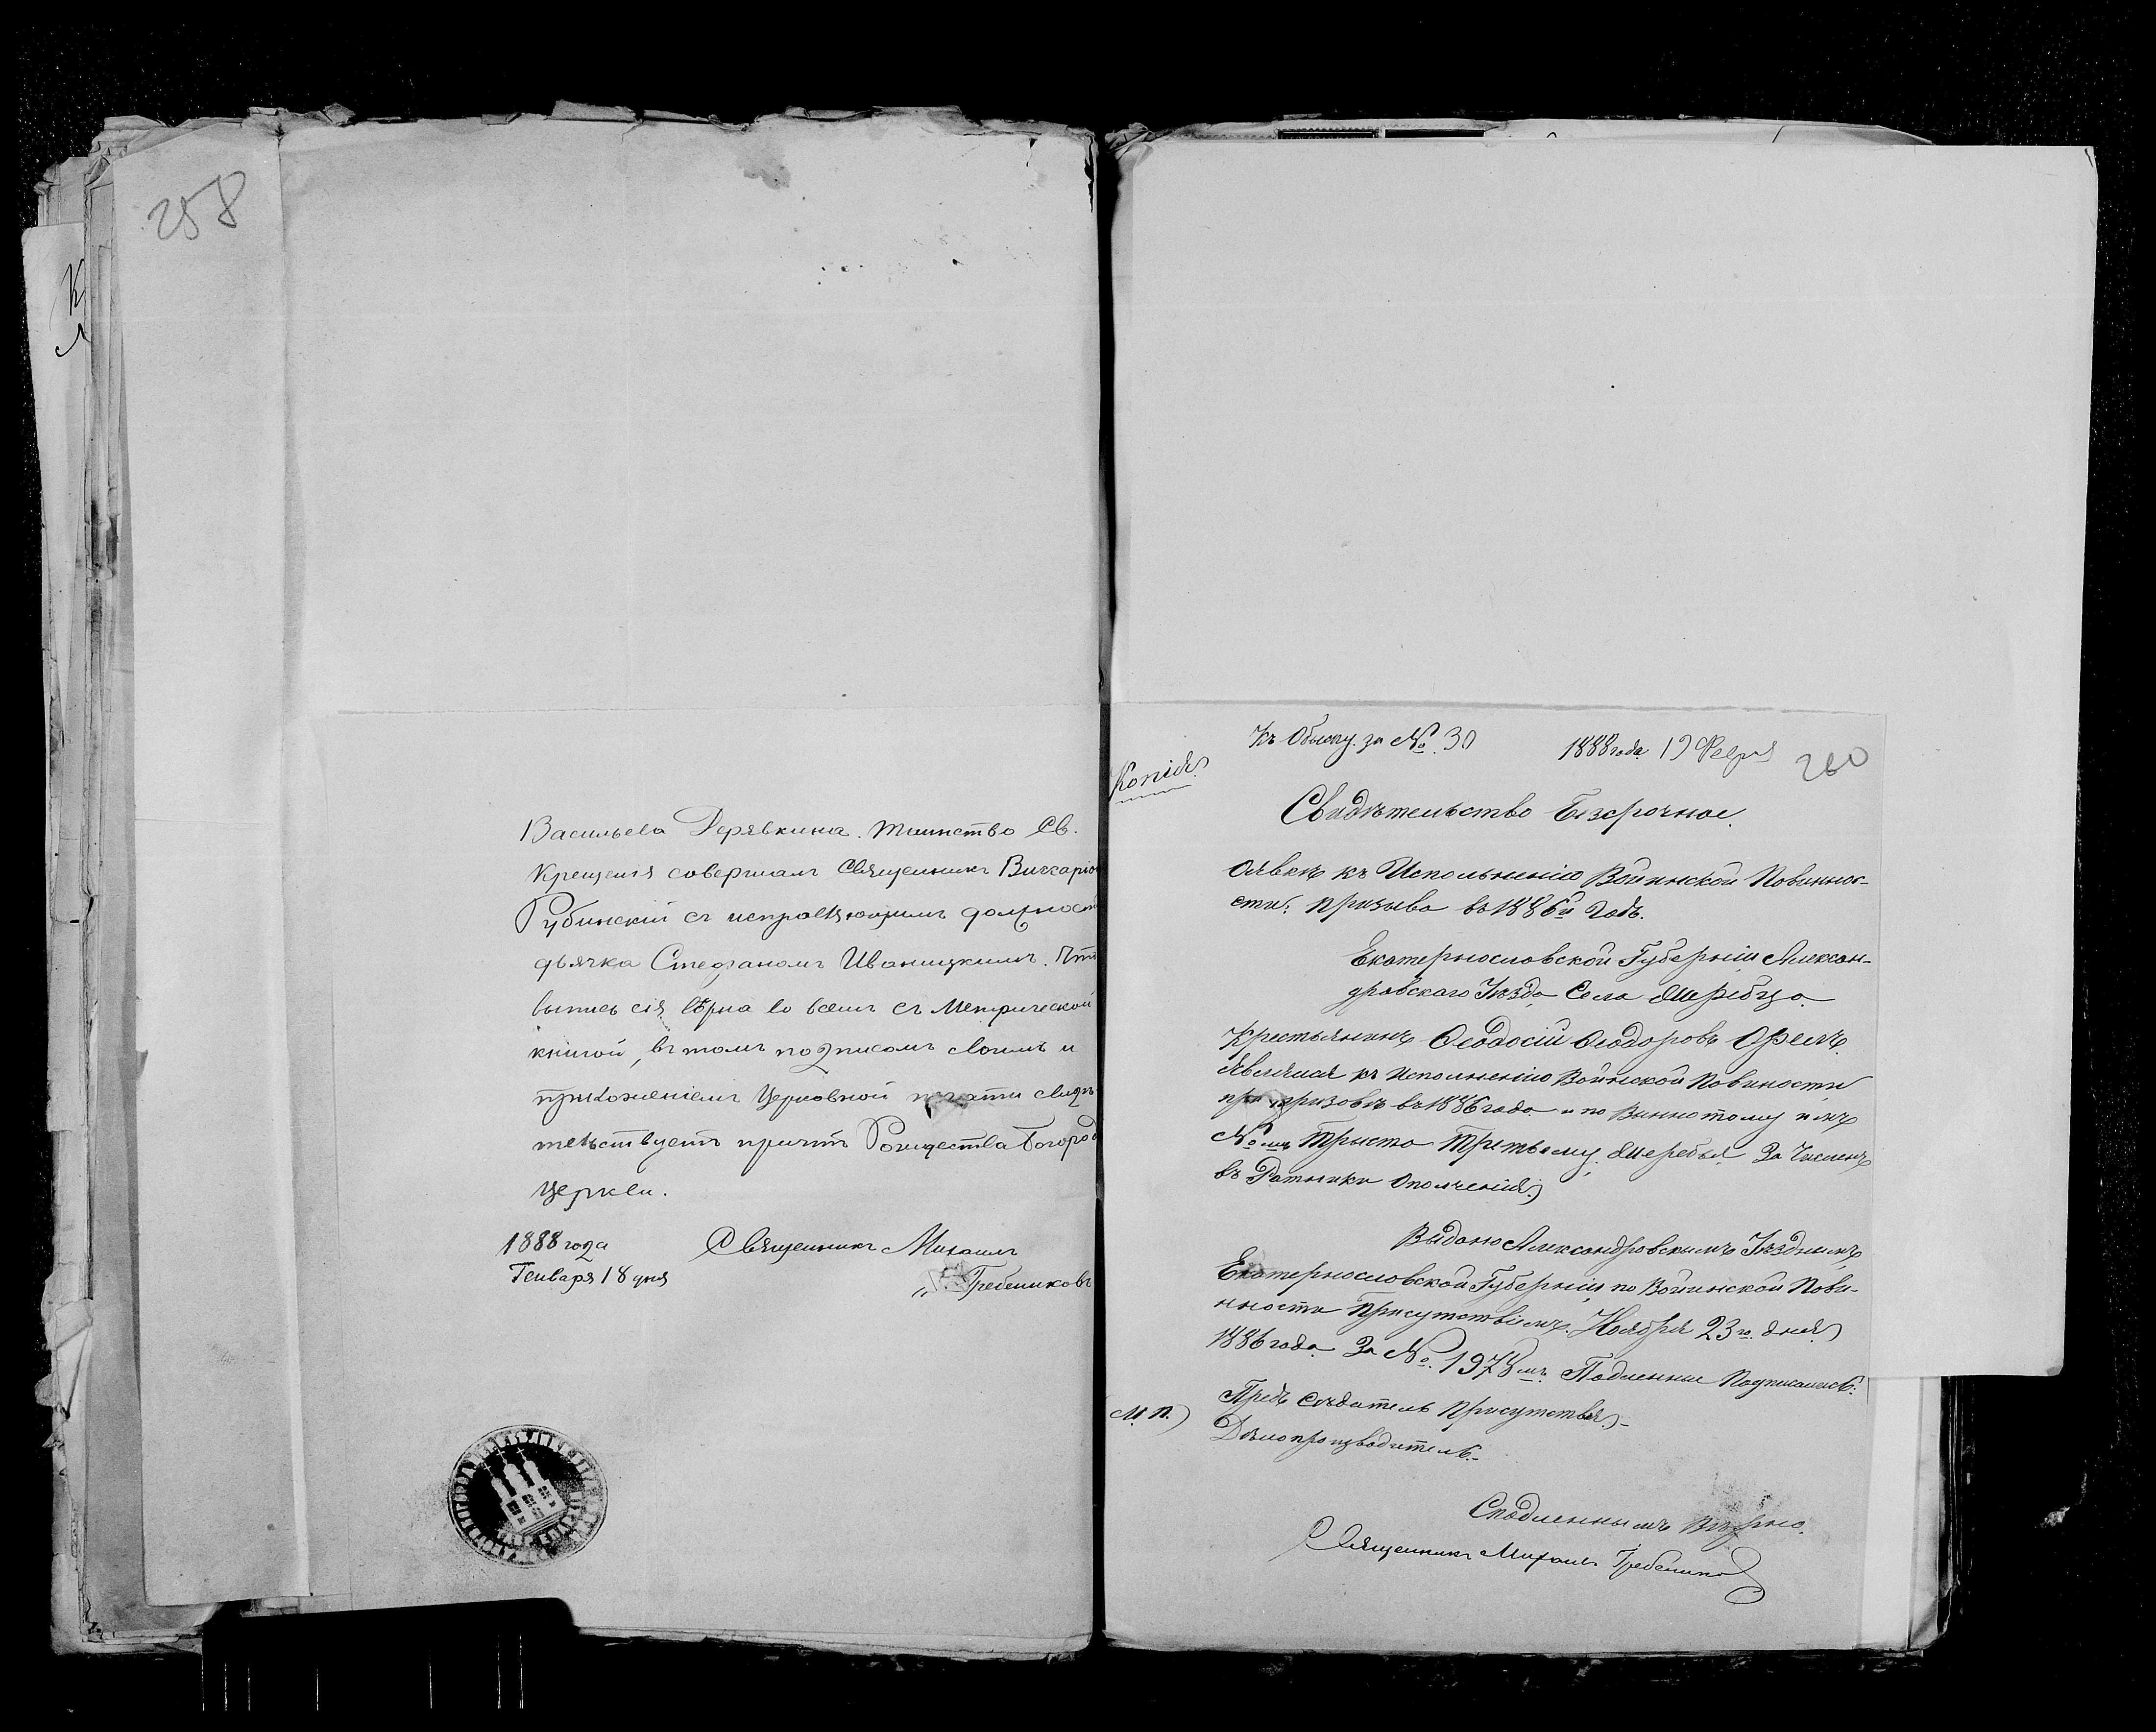 258
Васильева Дерявкина. Таинство Св.
Крещенія совершалъ Священникъ Виккаріо
Рубинскій съ исправляющимъ должност
дьячка Стефаномъ Иваницкимъ. Что
выпись сія вѣрна во всемъ съ Метрической
книгой, въ томъ подписомъ своимъ и
приложеніемъ Церковной печати свидѣ-
тельствуетъ причтъ Рождества Богород
Церкви.
1888 года
Генваря 18 дня
Священникъ Михаилъ
Гребениковъ
Къ Обыску за №. 30 1888 года 19 Февра 260
Копія
Свидѣтельство Безсрочное.
О явкѣ къ Исполненію Воинской Повиннос-
сти: призыва въ 1886 й Годъ.
Екатернословской Губерніи Алексан-
дровскаго Уѣзда Села Жеребца
Крестьянинъ Ѳеодосій Ѳеодоровъ Орелъ
явлился къ исполненію Воинской Повиности
при призовѣ въ 1886 года и по Винотому имъ
№ мъ Триста Третьему Жеребья За Численъ
въ Ратники ополченія
Выдано Александровскимъ Уѣзднымъ
Екатернословской Губерніи по Воинской Пови-
нности Присутствіемъ. Ноября 23 го дня
1886 года За №. 1978 мъ Подленные Подписались:
Предъ Сѣдатель Присутствія
М. П.
Дѣлопроизводитель
Сподленнымъ Вѣрно.
Священникъ Михаилъ Гребениковъ